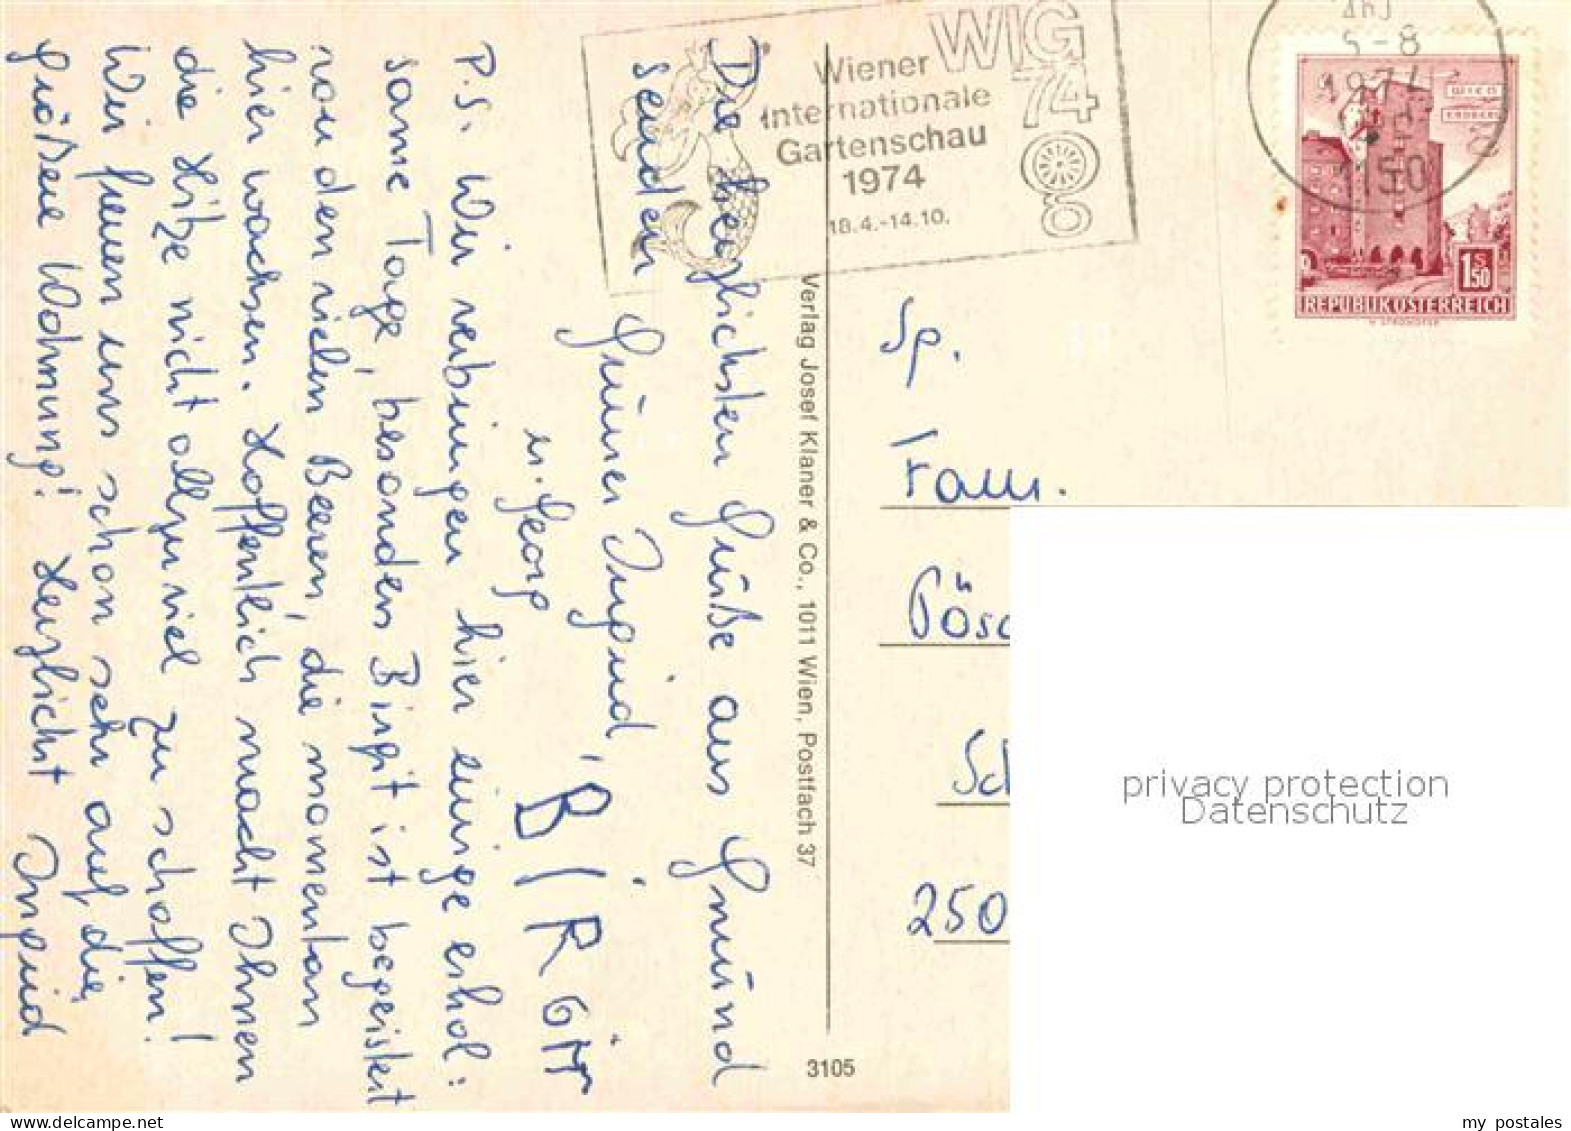 Die herzlichsten Grüße aus Gmünd
senden
Grüner Ingrid,
u. Georg BIRGIT
P.S. Wir verbringen hier einige erhol=
same Tage, besonders Birgit ist begeistert
von den vielen Beeren, die momentan
hier wachsen. Hoffentlich macht Ihnen
die Hitze nicht allzu viel zu schaffen!
Wir freuen uns schon sehr auf die
größere Wohnung! Herzlichst Ingrid
Verlag Josef Klaner & Co., 1011 Wien, Postfach 37
3105
WIG
74
Wiener
Internationale
Gartenschau
1974
18.4.-14.10.
5-8
1974
1150
WIEN
ERDBERG
S
1.50
REPUBLIK ÖSTERREICH
Sp.
Fam.
Pösc
Sch
250
privacy protection
Datenschutz
my_postales